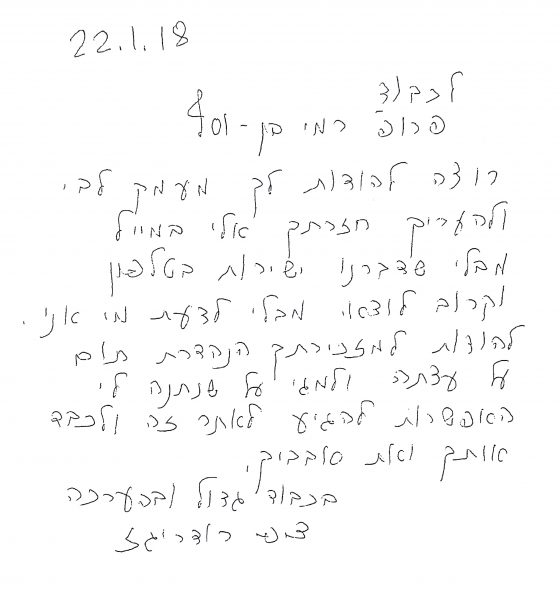 22.1.18
לכבוד
פרופ' רמי בן-יוסף
רוצה להודות לך מעמק לבי
ולהעריך חזרתך אלי במייל
מבלי שדברנו ישירות בטלפון
וקרוב לוצאי מבלי לדעת מי אני.
להודות למזכירתך הנהדרת תום
על עצתה ולמגי על שנתנה לי
האפשרות להגיע לאתר זה ולכבד
אותך ואת סובביך.
בכבוד גדול ובהערכה
רודריגז